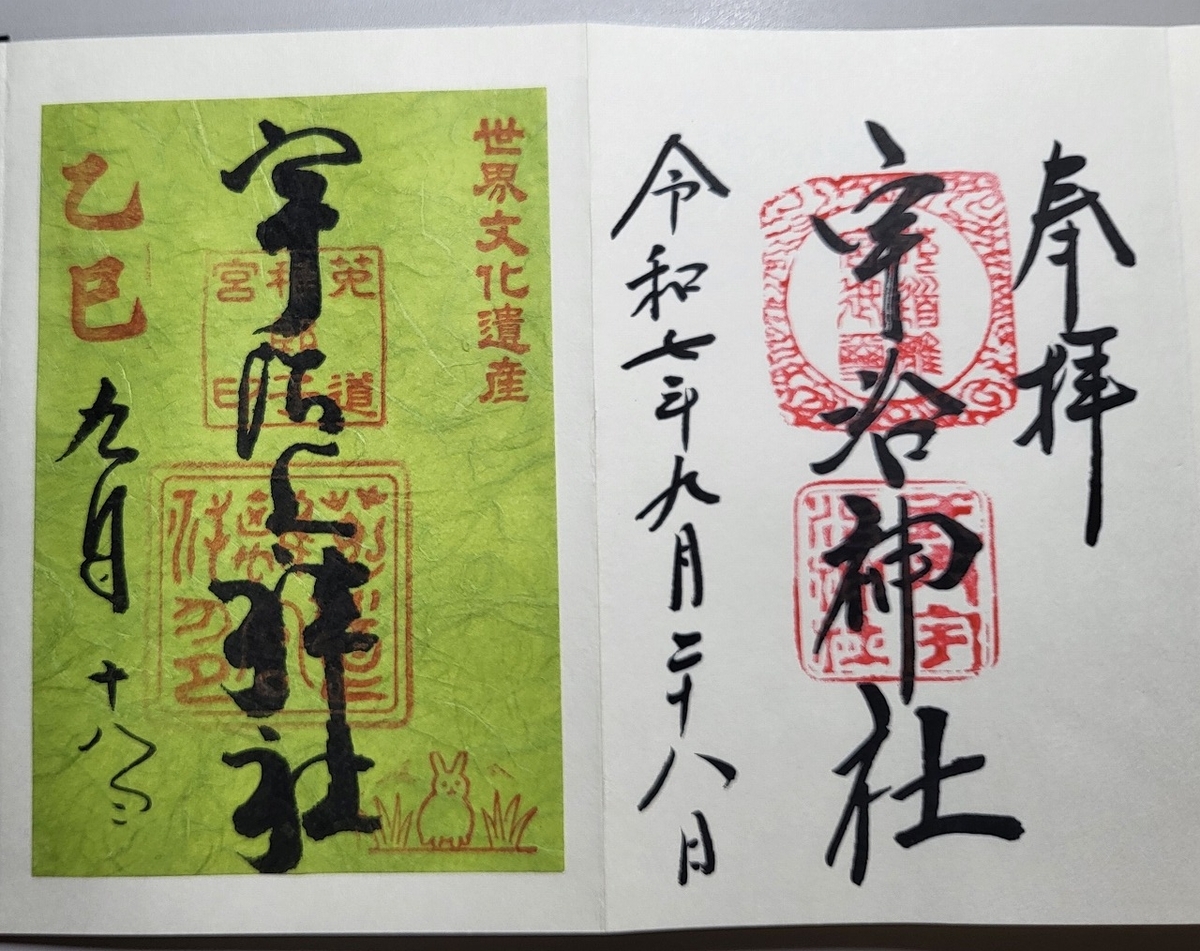 奉拝
宇治神社
令和七年九月二十八日
世界文化遺産
宇治上神社
乙巳
九月十八日